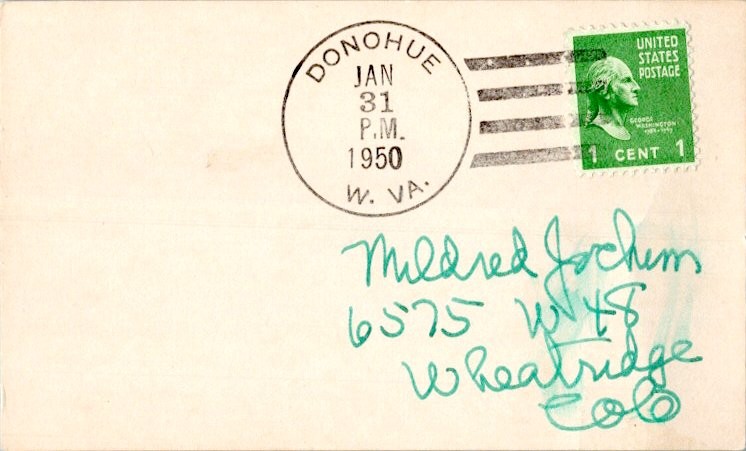 DONOHUE
JAN
31
P.M.
1950
W. VA.
UNITED
STATES
POSTAGE
GEORGE
WASHINGTON
1 CENT 1
Mildred Jochim
6575 W 48
Wheatridge
Colo